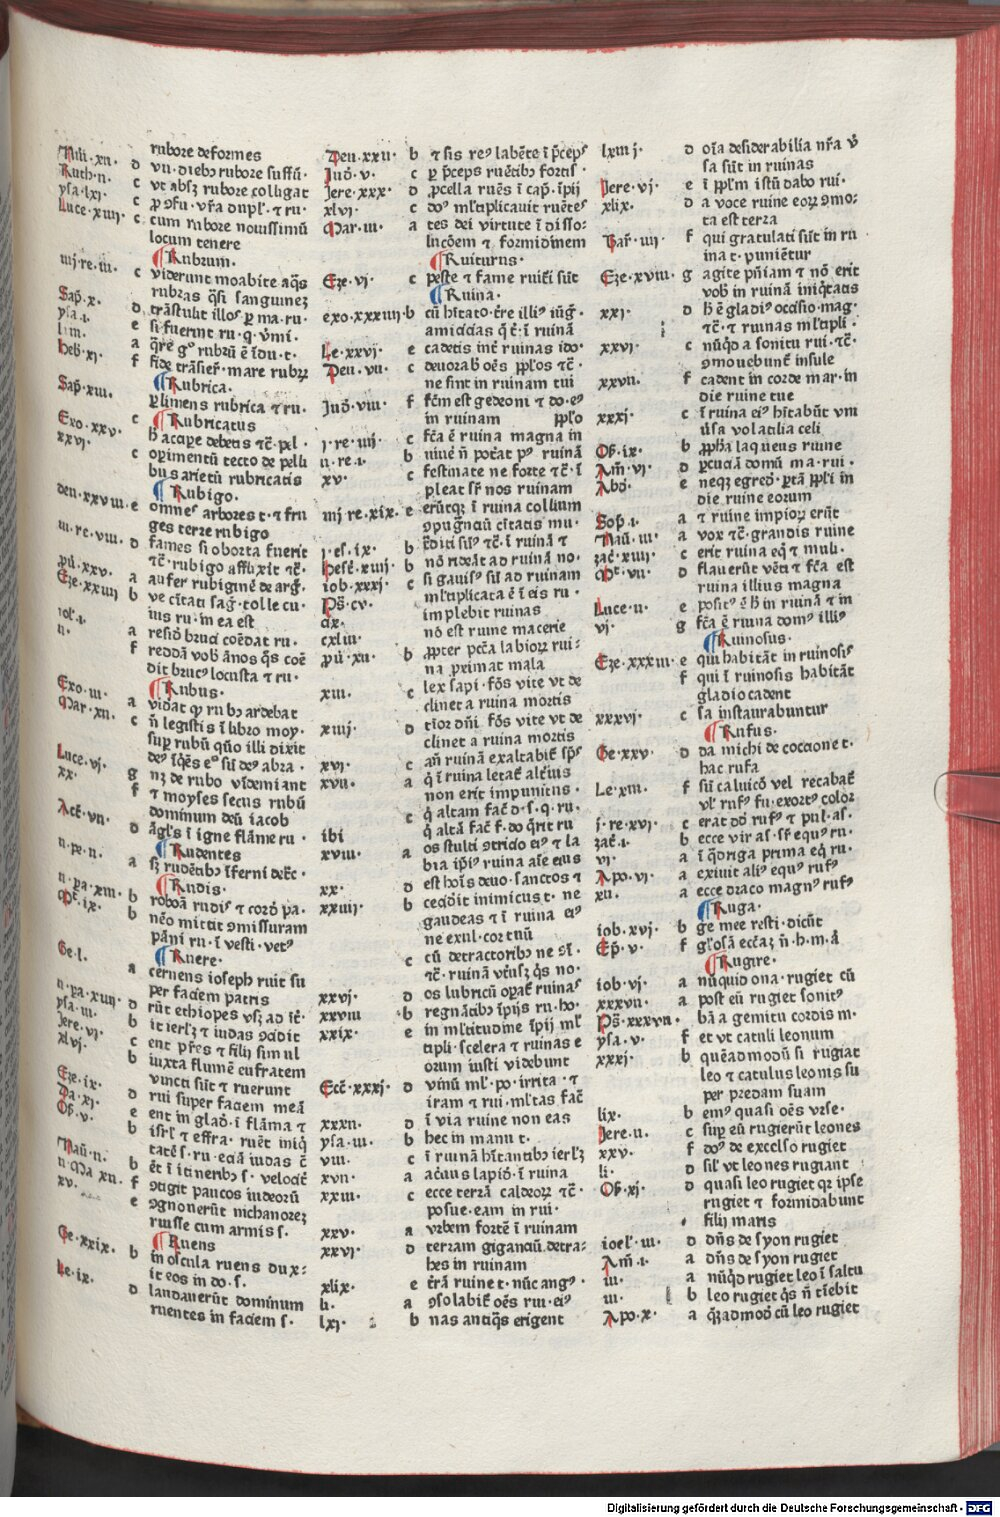 rubore deformes
Nũ·xii· d vñ·diebȝ rubore suffũ·
Ruth·ii· c vt absqȝ rubore colligat
ysa·lxi· c ꝓ ꝯfu·vr̃a dupl̃·⁊ ru·
Luce·xiiij· c cum rubore nouissimũ
locum tenere
¶Rubrum.
iiij·re·iii· c viderunt moabite aq̃s
rubras q̃si sanguinez
Sap̃·x· d trãstulit illoſ·ꝑ ma·ru·
ysa·i· e si fuerint ru·q̃·vmi·
lxiii· a q̃re g° rubrũ ẽ ĩdu·t·
Heb̃·xi· f fide trãsier̃·mare rubꝝ
¶Rubrica·
Sap̃·xiii· c ꝑlimens rubrica ⁊ ru·
¶Rubricatus
Exo·xxv· c h̃ acipe debetis ⁊c̃·pel·
xxvi· c opimentũ tecto de pelli
bus arietũ rubricatis
¶Rubigo·
deu·xxviii· e omneſ arbores t·⁊ fru
ges terre rubigo
iii·re·viii· d fames si oborta fuerit
⁊c̃·rubigo afflixit ⁊c̃·
pũ·xxv· a aufer rubiginẽ de arg̃·
Eze·xxiiij b ve cĩtati sag̃·tolle cu·
ius ru·in ea est
ioł·i· a resid̃ bruci coẽdat ru·
ii· f reddã vob̃ ãnos q̃s coẽ
dit brucꝰ locusta ⁊ ru·
¶Rubus·
Exo·iii· a vidat qȝ rubȝ ardebat
Mar·xii· c ñ legistis ĩ libro moy·
suꝑ rubũ qũo illi dixit
Luce·vj· g nȝ de rubo vĩdemiant
xx· f ⁊ moyses secus rubũ
dominum deũ iacob
Act̃·vii· d ãgl̃s ĩ igne flãme ru·
¶Rudentes
ii·pe·ii· a sȝ rudẽtibȝ ĩferni det̃c·
¶Rudis·
ii·pa·xiii· b roboã rudiſ ⁊ cord̃ pa·
Mt̃·ix· b nẽo mittit ꝯmissuram
pãni ru·ĩ vesti·vetꝰ
¶Ruere·
Ge·l· a cernens ioseph ruit su
per faciem patris
ii·pa·xiiij· d rũt ethiopes vsȝ ad ic̃·
ysa·iii· b it ierl̃ȝ ⁊ iudas ꝯcidit
Jere·vj· c ent pr̃es ⁊ filij simul
xlvj· b iuxta flumẽ eufratem
vincti sũt ⁊ ruerunt
Eze·ix· d rui super faciem meã
Da·xj· e ent in glad̃·ĩ flãma ⁊
Oſ̃·v· b isrl̃ ⁊ effra·ruẽt iniq̃
tatẽ s·ru·eciã iudas c̃
Naũ·ii· b ẽt ĩ itineribȝ s·velocit̃
ii·Ma·xii· f ꝯtigit paucos iudeorũ
xv· e ꝯgnonerũt nichanorez
ruisse cum armis s·
¶Ruens
Ge·xxix· b in oscula ruens dux·
it eos in do·s·
Le·ix· d laudauerũt dominum
ruentes in faciem s·
Deu·xxii· b ⁊ sis reꝰ labẽte ĩ p̃ceps
Jud̃·v· c ꝑ p̃ceps ruẽtibȝ fortiſ·
Jere·xxx· d ꝓcella ruẽs ĩ cap̃·ĩpij
xlvj· c doꝰ ml̃tiplicauit ruẽteſ
Mar·iii· a tes dei virtute ĩ disso·
lucõem ⁊ formidinem
¶Ruiturus·
Eze·vj· c peste ⁊ fame ruit̃i sũt
¶Ruina·
exo·xxxiiij· b cũ hĩtato·t̃re illiꝰ iũg̃·
amicicias q̃ t̃·ĩ ruinã
Le·xxvj· e cadetis int̃ ruinas ido·
Deu·vii· c deuorab̃ oẽs ppl̃os ⁊c̃·
ne sint in ruinam tui
Jud̃·viii· f fc̃m est gedeoni ⁊ do·eꝰ
in ruinam
j·re·iiij· c fc̃a ẽ ruina magna in ppl̃o
ii·re·i· b uiuẽ ñ potat̃ pꝰ ruinã
xv· c festinate ne forte ⁊c̃·ĩ
pleat sr̃ nos ruinam
iiij·re·xix· e erũtqȝ ĩ ruina collium
ꝯpugñaũ cĩtatis mu·
j·es·ix· b t̃diti sũꝰ ⁊c̃·ĩ ruinã ⁊
Hest̃·xiiij· b nõ rideãt ad ruinã no·
iob·xxxj· c si gauisꝰ sũ ad ruinam
Pẽ·cv· ml̃tiplicata ẽ ĩ eis ru·
cix· implebit ruinas
cxliii· nõ est ruine macerie
pũ·xii· b ꝓpter pcc̃a labioꝝ rui·
na ꝓximat mala
xiii· c lex sapi·fõs vite vt de
clinet a ruina mortis
xiiij· d tĩor dñi fõs vite vt de
clinet a ruina mortis
xvj· c añ ruinã exaltabit̃ sp̃s
xvii· a q̃ ĩ ruina letat̃ altẽius
non erit impunitus·
c q̃ altam fac̃ d·s·q·ru·
ibi q̃ altã fac̃ f·do q̃rit ru
xviii· a os stulti ꝯtricio eiꝰ ⁊ la
bia ip̃iꝰ ruina aĩe eius
xx· d est hoĩs deuo·sanctos ⁊
xxiiij· b cecid̃it inimicus t·ne
gaudeas ⁊ ĩ ruina eiꝰ
ne exul·cor tuũ
c cũ detractoribȝ ne ꝯĩ·
⁊c̃·ruinã vt̃usȝ q̃s no·
xxvj· d os lubricũ oꝑat̃ ruinaſ
xxviii b regnãtibȝ ĩpijs ru·ho·
xxix· e in ml̃titudine ĩpij ml̃
tipli·scelera ⁊ ruinas e
orum iusti videbunt
Ecc̃·xxxj· d vinũ ml̃·po·irrita·⁊
iram ⁊ rui·ml̃tas fac̃
xxxii· d ĩ via ruine non eas
ysa·iii· b hec in manu t·
viii· c ĩ ruinã hĩtantibȝ ierl̃ȝ
xvii· a aceruus lapid̃·ĩ ruina
xxiii· c ecce terrã caldeoꝝ ⁊c̃·
posue·eam in rui·
xxv· a vrbem fortẽ ĩ ruinam
xxvj· d terram gigantiũ detra·
hes in ruinam
xlix· e t̃rã ruine t·nũc angꝰ·
li· a ꝯsolabit̃ oẽs rui·eiꝰ
lxj· b nas antiq̃s erigent
lxiiij· d oĩa desiderabilia nr̃a v̾
sa sũt in ruinas
Jere·vj· e ĩ ppl̃m istũ dabo rui·
xlix· d a voce ruine eoꝝ ꝯmo·
ta est terra
Bar̃·iiij f qui gratulati sũt in ru
ina t·puniẽtur
Eze·xviii· g agite pñiam ⁊ nõ erit
vob̃ in ruinã iniq̃tatis
xxj· d h̃ ẽ gladiꝰ occisio mag·
⁊c̃·⁊ ruinas ml̃tipli·
xxvj· c nũq̃d a sonitu rui·⁊c̃·
ꝯmouebunt̃ insule
xxvii· f cadent in corde mar·in
die ruine tue
xxxj· c ĩ ruina eiꝰ hĩtabũt vni
ũsa volatilia celi
Oſ̃·ix· b ꝓph̃a laqueus ruine
Am̃·vj· d ꝑcuciã domũ ma·rui·
Abd̃· e neqȝ egred̃·ꝑtã ppl̃i in
die ruine eorum
Sop̃·i· a ⁊ ruine impioꝝ erũt
Naũ·iii· a vox ⁊c̃·grandis ruine
zac̃·xiiij· c erit ruina eq̃ ⁊ muli·
Mt̃·vii· d flauerũt vẽti ⁊ fc̃a est
ruina illius magna
Luce·ii· e positꝰ ẽ h̃ in ruinã ⁊ in
vj· g fc̃a ẽ ruina domꝰ illiꝰ
¶Ruinosus·
Eze·xxxiii· e qui habitãt in ruinosiſ
f qui ĩ ruinosis habitãt
gladio cadent
xxxvj· c sa instaurabuntur
¶Rufus·
Ge·xxv· d da michi de coccione t·
hac rufa
Le·xiii· f siñ caluiciõ vel recabat̃
vl̃ rufꝰ fũ·exortꝰ color
j·re·xvj· c erat dd̃ rufꝰ ⁊ pul·as·
zac̃·i· b ecce vir as·sr̃ equꝰ ru·
vj· a ĩ q̃driga prima eq̃ ru·
Apo·vj· a exiuit aliꝰ equꝰ rufꝰ
xii· a ecce draco magnꝰ rufꝰ
¶Ruga·
iob·xvj· b ge mee testi·dicũt
Ep̃·v· f gl̃osã ecc̃az ñ·h·m·ã
¶Rugire·
iob·vj· a nũquid ona·rugiet cũ
xxxvii· a post eũ rugiet sonitꝰ
Pẽ·xxxvii· bã a gemitu cordis m·
ysa·v· f et vt catuli leonum
xxxj· b quẽadmodũ si rugiat
leo ⁊ catulus leonis su
per predam suam
lix· b emꝰ quasi oẽs vrse·
Jere·ii· c suꝑ eũ rugierũt leones
xxv· f doꝰ de excelso rugiet
li· d siĩ vt leones rugiant
Oſ̃·xj· d quasi leo rugiet qꝛ ipse
rugiet ⁊ formidabunt
filij maris
ioel̃·iii· d dñs de syon rugiet
Am̃·i· a dñs de syon rugiet
iii· a nũq̃d rugiet leo ĩ saltu
iii· b leo rugiet q̃s ñ tĩebit
Apo·x· a q̃ȝadmod̃ cũ leo rugiet
Digitalisierung gefördert durch die Deutsche Forschungsgemeinschaft - DFG